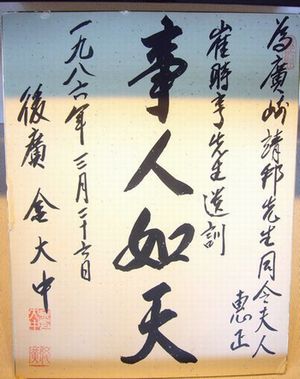 為廣 靖邦先生同令夫人
惠正
崔時亨先生遺訓
事人如天
一九八六年三月二十六日
後廣 金大中